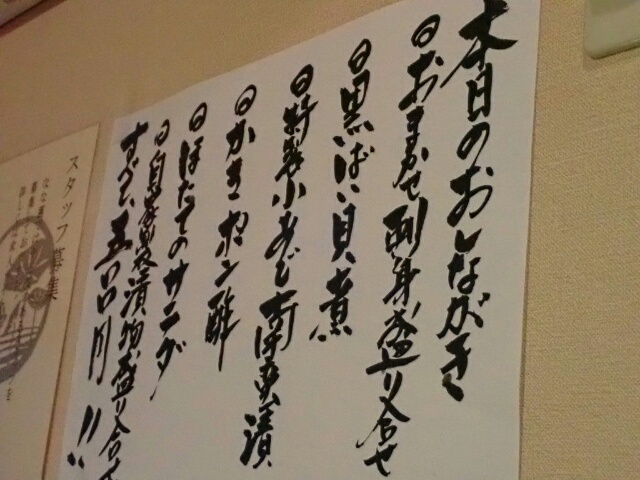 本日のおしながき
◎おまかせ刺身盛り合せ
◎黒ばい貝煮
◎特製小あじ南ばん漬
◎かきポン酢
◎ほたてのサラダ
◎自家製漬物盛り合せ
すべて 五百円!!
スタッフ募集